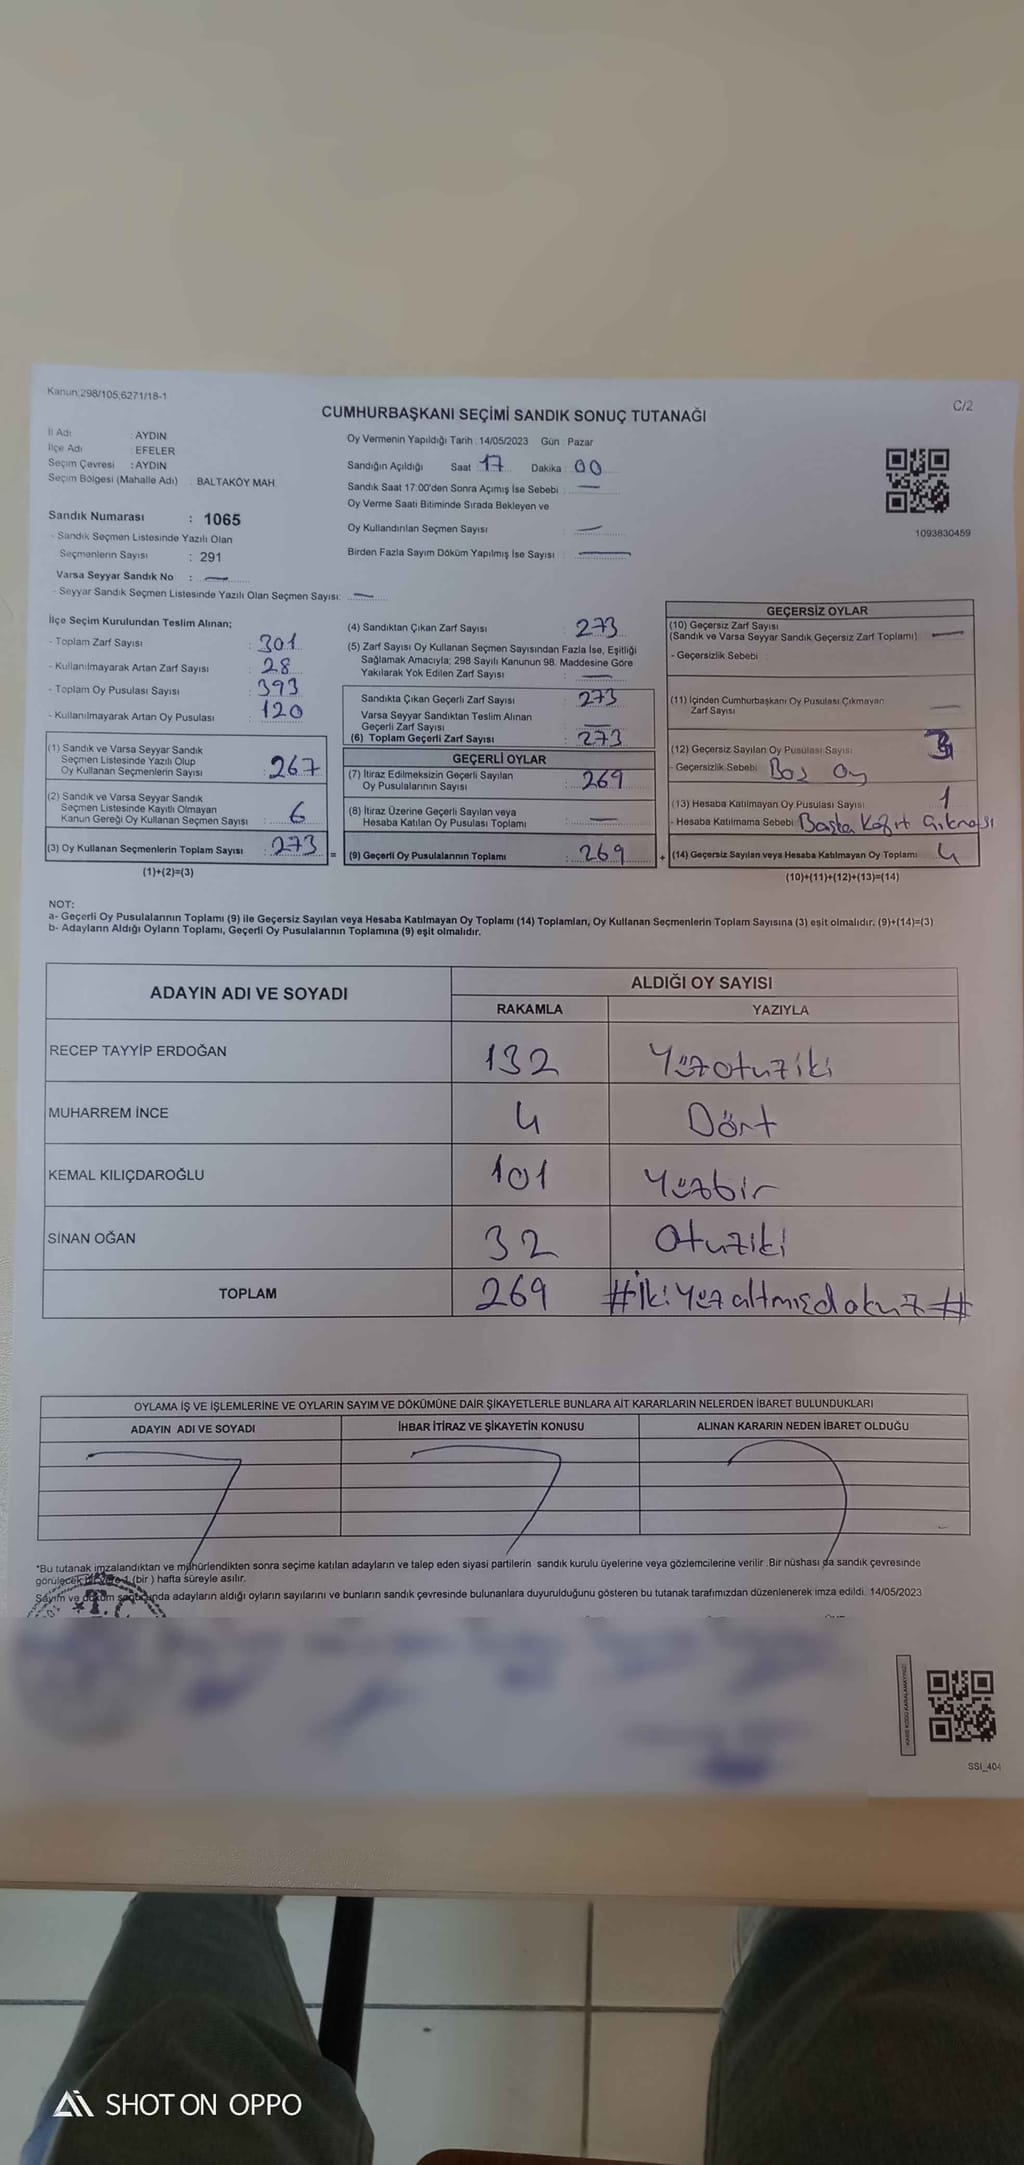 Kanun:298/105,6271/18-1
C/2
CUMHURBAŞKANI SEÇİMİ SANDIK SONUÇ TUTANAĞI
İl Adı : AYDIN
İlçe Adı : EFELER
Seçim Çevresi : AYDIN
Seçim Bölgesi (Mahalle Adı) : BALTAKÖY MAH.
Sandık Numarası : 1065
- Sandık Seçmen Listesinde Yazılı Olan
Seçmenlerin Sayısı : 291
Varsa Seyyar Sandık No : —
- Seyyar Sandık Seçmen Listesinde Yazılı Olan Seçmen Sayısı: —
Oy Vermenin Yapıldığı Tarih : 14/05/2023 Gün : Pazar
Sandığın Açıldığı Saat : 17 Dakika : 00
Sandık Saat 17:00'den Sonra Açımış İse Sebebi : —
Oy Verme Saati Bitiminde Sırada Bekleyen ve
Oy Kullandırılan Seçmen Sayısı : —
Birden Fazla Sayım Döküm Yapılmış İse Sayısı : —
1093830459
İlçe Seçim Kurulundan Teslim Alınan;
- Toplam Zarf Sayısı : 301
- Kullanılmayarak Artan Zarf Sayısı : 28
- Toplam Oy Pusulası Sayısı : 393
- Kullanılmayarak Artan Oy Pusulası : 120
(1) Sandık ve Varsa Seyyar Sandık
Seçmen Listesinde Yazılı Olup
Oy Kullanan Seçmenlerin Sayısı : 267
(2) Sandık ve Varsa Seyyar Sandık
Seçmen Listesinde Kayıtlı Olmayan
Kanun Gereği Oy Kullanan Seçmen Sayısı : 6
(3) Oy Kullanan Seçmenlerin Toplam Sayısı : 273 =
(1)+(2)=(3)
(4) Sandıktan Çıkan Zarf Sayısı : 273
(5) Zarf Sayısı Oy Kullanan Seçmen Sayısından Fazla İse, Eşitliği
Sağlamak Amacıyla; 298 Sayılı Kanunun 98. Maddesine Göre
Yakılarak Yok Edilen Zarf Sayısı : —
Sandıkta Çıkan Geçerli Zarf Sayısı : 273
Varsa Seyyar Sandıktan Teslim Alınan
Geçerli Zarf Sayısı : —
(6) Toplam Geçerli Zarf Sayısı : 273
GEÇERLİ OYLAR
(7) İtiraz Edilmeksizin Geçerli Sayılan
Oy Pusulalarının Sayısı : 269
(8) İtiraz Üzerine Geçerli Sayılan veya
Hesaba Katılan Oy Pusulası Toplamı : —
(9) Geçerli Oy Pusulalarının Toplamı : 269 +
GEÇERSİZ OYLAR
(10) Geçersiz Zarf Sayısı
(Sandık ve Varsa Seyyar Sandık Geçersiz Zarf Toplamı) : —
- Geçersizlik Sebebi :
(11) İçinden Cumhurbaşkanı Oy Pusulası Çıkmayan
Zarf Sayısı : —
(12) Geçersiz Sayılan Oy Pusulası Sayısı : 3
- Geçersizlik Sebebi : Boş Oy
(13) Hesaba Katılmayan Oy Pusulası Sayısı : 1
- Hesaba Katılmama Sebebi : Başka Kağıt Çıkması
(14) Geçersiz Sayılan veya Hesaba Katılmayan Oy Toplamı : 4
(10)+(11)+(12)+(13)=(14)
NOT:
a- Geçerli Oy Pusulalarının Toplamı (9) ile Geçersiz Sayılan veya Hesaba Katılmayan Oy Toplamı (14) Toplamları, Oy Kullanan Seçmenlerin Toplam Sayısına (3) eşit olmalıdır. (9)+(14)=(3)
b- Adayların Aldığı Oyların Toplamı, Geçerli Oy Pusulalarının Toplamına (9) eşit olmalıdır.
ADAYIN ADI VE SOYADI
ALDIĞI OY SAYISI
RAKAMLA YAZIYLA
RECEP TAYYİP ERDOĞAN 132 Yüzotuziki
MUHARREM İNCE 4 Dört
KEMAL KILIÇDAROĞLU 101 Yüzbir
SİNAN OĞAN 32 Otuziki
TOPLAM 269 #İkiYüzaltmışdokuz#
OYLAMA İŞ VE İŞLEMLERİNE VE OYLARIN SAYIM VE DÖKÜMÜNE DAİR ŞİKAYETLERLE BUNLARA AİT KARARLARIN NELERDEN İBARET BULUNDUKLARI
ADAYIN ADI VE SOYADI İHBAR İTİRAZ VE ŞİKAYETİN KONUSU ALINAN KARARIN NEDEN İBARET OLDUĞU
*Bu tutanak imzalandıktan ve mühürlendikten sonra seçime katılan adayların ve talep eden siyasi partilerin sandık kurulu üyelerine veya gözlemcilerine verilir .Bir nüshası da sandık çevresinde
görülecek bir yere 1 (bir ) hafta süreyle asılır.
Sayım ve döküm sonucunda adayların aldığı oyların sayılarını ve bunların sandık çevresinde bulunanlara duyurulduğunu gösteren bu tutanak tarafımızdan düzenlenerek imza edildi. 14/05/2023
T.C.
SSI_404
SHOT ON OPPO